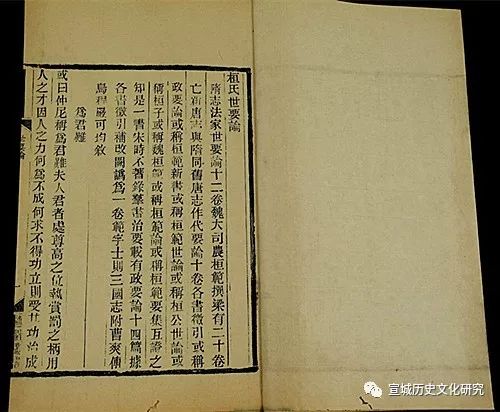 桓氏世要論
隋志法家世要論十二卷魏大司農桓範撰梁有二十卷
亡新唐志與隋同舊唐志作代要論十卷各書徵引或稱
政要論或稱桓範新書或稱桓範世論或稱桓公世論或
稱桓子或稱魏桓範或稱桓範論或稱桓範要集互證之
知是一書宋時不箸錄羣書治要載有政要論十四篇據
各書徵引補改闕譌爲一卷範字士則三國志附曹爽傳
烏程嚴可均敘
爲君難
或曰仲尼稱爲君難夫人君者處尊高之位執賞罰之柄用
人之才因人之力何爲不成何求不得功立則受其功治成
宣城历史文化研究